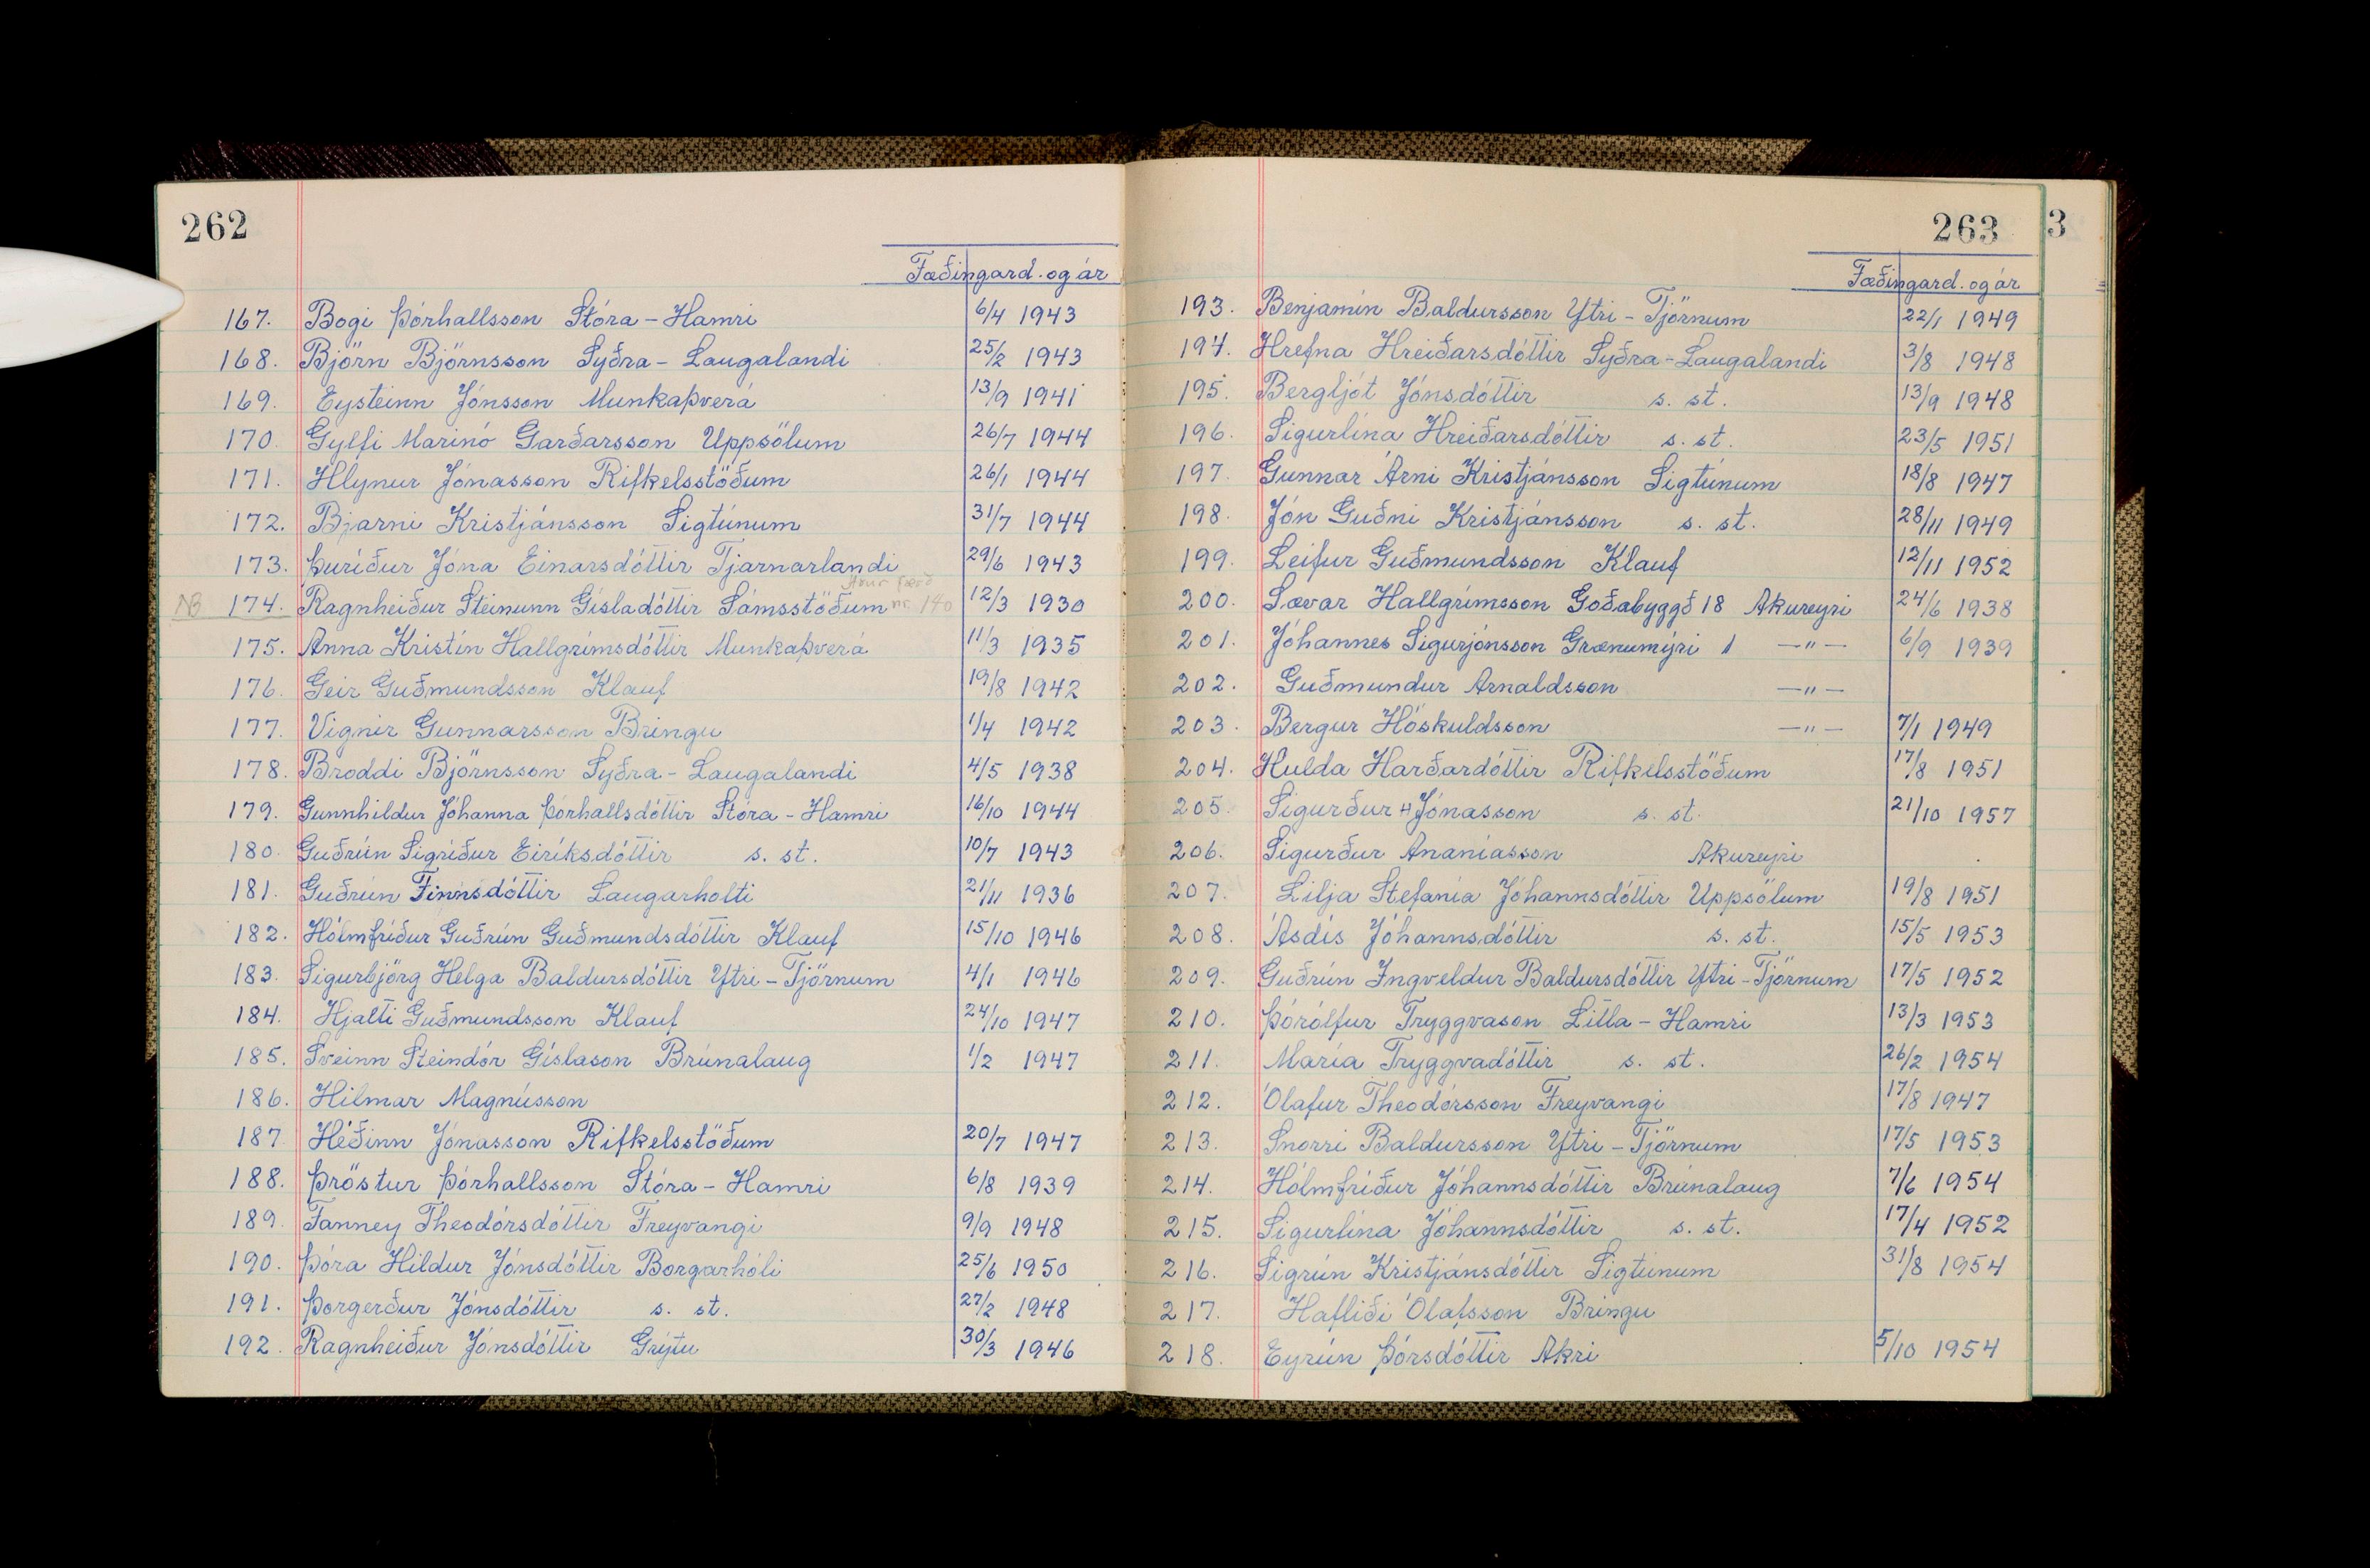 262
Fæðingard. og ár
167. Bogi Þórhallsson Stóra-Hamri 6/4 1943
168. Björn Björnsson Syðra-Laugalandi 25/2 1943
169. Eysteinn Jónsson Munkaþverá 13/9 1941
170. Gylfi Marinó Garðarsson Uppsölum 26/7 1944
171. Hlynur Jónasson Rifkelsstöðum 26/1 1944
172. Bjarni Kristjánsson Sigtúnum 31/7 1944
173. Þuríður Jóna Einarsdóttir Tjarnarlandi 29/6 1943
NB 174. Ragnheiður Steinunn Gísladóttir Sámsstöðum nr. 140 12/3 1930
175. Anna Kristín Hallgrímsdóttir Munkaþverá 11/3 1935
176. Geir Guðmundsson Klauf 19/8 1942
177. Vignir Gunnarsson Bringu 1/4 1942
178. Broddi Björnsson Syðra-Laugalandi 4/5 1938
179. Gunnhildur Jóhanna Þórhallsdóttir Stóra-Hamri 16/10 1944
180. Guðrún Sigríður Eiríksdóttir s. st. 10/7 1943
181. Guðrún Finnsdóttir Laugarholti 21/11 1936
182. Hólmfríður Guðrún Guðmundsdóttir Klauf 15/10 1946
183. Sigurbjörg Helga Baldursdóttir Ytri-Tjörnum 4/1 1946
184. Hjalti Guðmundsson Klauf 24/10 1947
185. Sveinn Steindór Gíslason Brúnalaug 1/2 1947
186. Hilmar Magnússon
187. Héðinn Jónasson Rifkelsstöðum 20/7 1947
188. Þröstur Þórhallsson Stóra-Hamri 6/8 1939
189. Fanney Theodórsdóttir Freyvangi 9/9 1948
190. Þóra Hildur Jónsdóttir Borgarhóli 25/6 1950
191. Þorgerður Jónsdóttir s. st. 27/2 1948
192. Ragnheiður Jónsdóttir Grýtu 30/3 1946
263
3
Fæðingard. og ár
193. Benjamín Baldursson Ytri-Tjörnum 22/1 1949
194. Hrefna Hreiðarsdóttir Syðra-Laugalandi 3/8 1948
195. Bergljót Jónsdóttir s. st. 13/9 1948
196. Sigurlína Hreiðarsdóttir s. st. 23/5 1951
197. Gunnar Árni Kristjánsson Sigtúnum 18/8 1947
198. Jón Guðni Kristjánsson s. st. 28/11 1949
199. Leifur Guðmundsson Klauf 12/11 1952
200. Sævar Hallgrímsson Goðabyggð 18 Akureyri 24/6 1938
201. Jóhannes Sigurjónsson Grænumýri 1 —"— 6/9 1939
202. Guðmundur Arnaldsson —"—
203. Bergur Höskuldsson —"— 7/1 1949
204. Hulda Harðardóttir Rifkelsstöðum 17/8 1951
205. Sigurður H Jónasson s. st. 21/10 1957
206. Sigurður Ananíasson Akureyri
207. Lilja Stefanía Jóhannsdóttir Uppsölum 19/8 1951
208. Ásdís Jóhannsdóttir s. st. 15/5 1953
209. Guðrún Ingveldur Baldursdóttir Ytri-Tjörnum 17/5 1952
210. Þórólfur Tryggvason Litla-Hamri 13/3 1953
211. María Tryggvadóttir s. st. 26/2 1954
212. Ólafur Theodórsson Freyvangi 17/8 1947
213. Snorri Baldursson Ytri-Tjörnum 17/5 1953
214. Hólmfríður Jóhannsdóttir Brúnalaug 7/6 1954
215. Sigurlína Jóhannsdóttir s. st. 17/4 1952
216. Sigrún Kristjánsdóttir Sigtúnum 31/8 1954
217. Hafliði Ólafsson Bringu
218. Eyrún Þórsdóttir Akri 5/10 1954